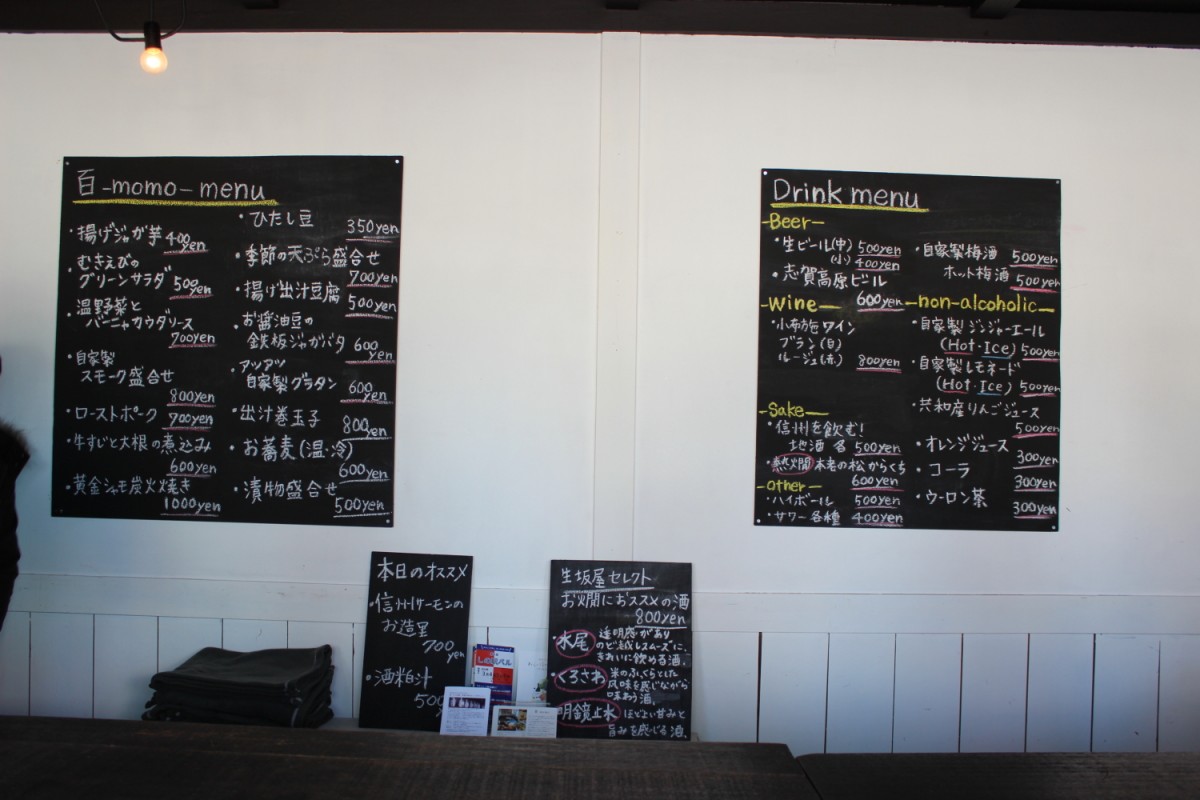 百-momo- menu
・揚げジャガ芋 400yen
・むきえびの
グリーンサラダ 500yen
・温野菜と
バーニャカウダソース
700yen
・自家製
スモーク盛合せ
800yen
・ローストポーク 700yen
・牛すじと大根の煮込み
600yen
・黄金シャモ炭火焼き
1000yen
・ひたし豆 350yen
・季節の天ぷら盛合せ
700yen
・揚げ出汁豆腐 500yen
・お醤油豆の
鉄板ジャガバタ 600yen
・アツアツ
自家製グラタン 600yen
・出汁巻玉子 800yen
・お蕎麦(温・冷)
600yen
・漬物盛合せ
500yen
Drink menu
-Beer-
・生ビール(中) 500yen
(小) 400yen
・志賀高原ビール
600yen
-Wine-
・小布施ワイン
ブラン(白)
ルージュ(赤) 800yen
-Sake-
・信州を飲む!
地酒 各 500yen
・熱燗 本老の松 からくち
600yen
-Other-
・ハイボール 500yen
・サワー各種 400yen
・自家製梅酒 500yen
ホット梅酒 500yen
-non-alcoholic-
・自家製ジンジャーエール
(Hot・Ice) 500yen
・自家製レモネード
(Hot・Ice) 500yen
・共和産りんごジュース
500yen
・オレンジジュース
300yen
・コーラ 300yen
・ウーロン茶 300yen
本日のオススメ
・信州サーモンの
お造里
700yen
・酒粕汁
500
生坂屋セレクト
お燗におススメの酒
800yen
・水尾 透明感があり
のど越しスムーズに、
きれいに飲める酒。
・くろさわ 米のふくらとした
風味を感じながら
味わう酒。
・明鏡止水 ほどよい甘みと
旨みを感じる酒。